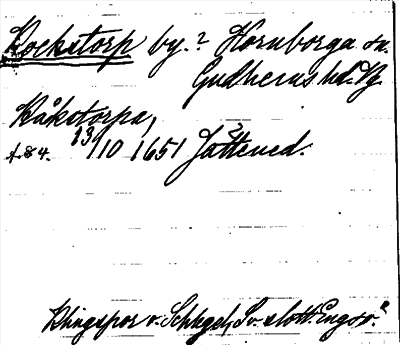 Rockstorp by.? Hornborga sn.
Gudhems hd. Vg.
Råkstorpa,
f.84. 13/10 1651 Jättened.
Klingspor o. Schlegel, Sv. slott. Engsö."